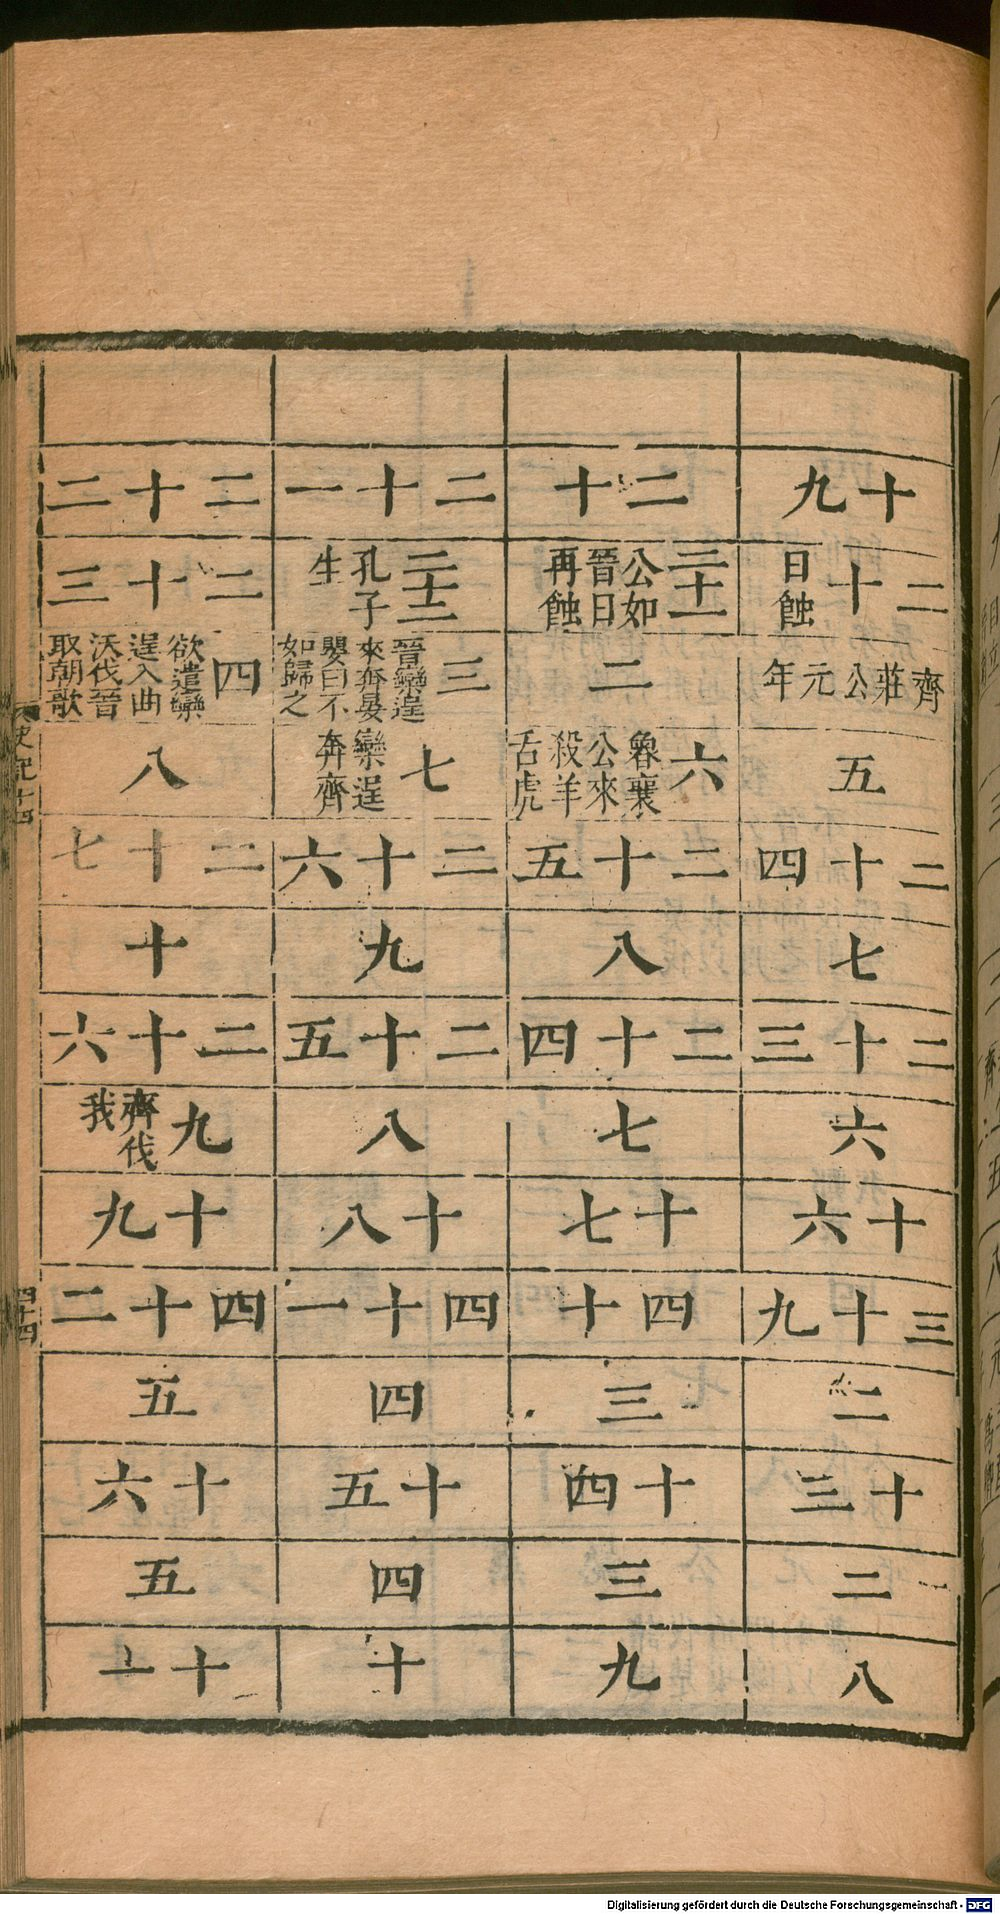 十九
二十
日蝕
齊莊公元年
五
二十四
七
二十三
六
十六
三十九
二
十三
二
八
二十
二十一
公如
晉日
再蝕
二
六
魯襄
公來
殺羊
舌虎
二十五
八
二十四
七
十七
四十
三
十四
三
九
二十一
二十二
孔子
生
三
晉欒逞
來奔晏
嬰曰不
如歸之
七
欒逞
奔齊
二十六
九
二十五
八
十八
四十一
四
十五
四
十
二十二
二十三
四
欲遣欒
逞入曲
沃伐晉
取朝歌
八
二十七
十
二十六
九
齊伐
我
十九
四十二
五
十六
五
十一
史記十四
四十四
Digitalisierung gefördert durch die Deutsche Forschungsgemeinschaft - DFG